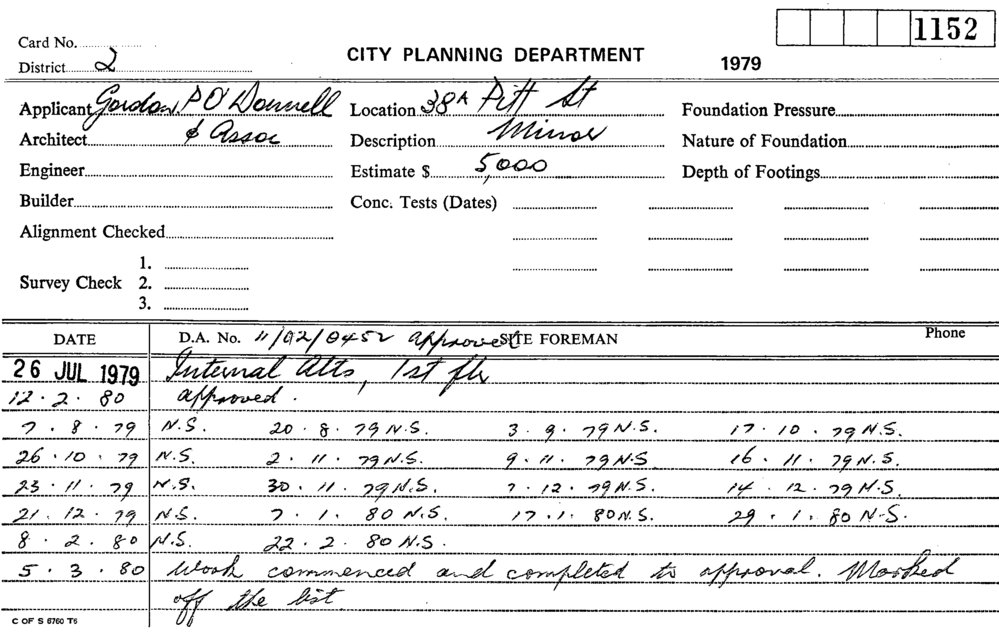 1152
Card No.
CITY PLANNING DEPARTMENT
District 2
1979
Applicant Gordon. P O'Donnell Location 38A Pitt St Foundation Pressure
Architect & Assoc Description Minor Nature of Foundation
Engineer Estimate $ 5,000 Depth of Footings
Builder Conc. Tests (Dates)
Alignment Checked
1.
Survey Check 2.
3.
DATE D.A. No. 11/92/0452 approved SITE FOREMAN Phone
26 JUL 1979 Internal Alts, 1st flr
12.2.80 approved.
7.8.79 N.S. 20.8.79 N.S. 3.9.79 N.S. 17.10.79 N.S.
26.10.79 N.S. 2.11.79 N.S. 9.11.79 N.S 16.11.79 N.S.
23.11.79 N.S. 30.11.79 N.S. 7.12.79 N.S. 14.12.79 N.S.
21.12.79 N.S. 7.1.80 N.S. 17.1.80 N.S. 29.1.80 N.S.
8.2.80 N.S. 22.2.80 N.S.
5.3.80 Work commenced and completed to approval. Marked
off the list.
C OF S 6760 T6